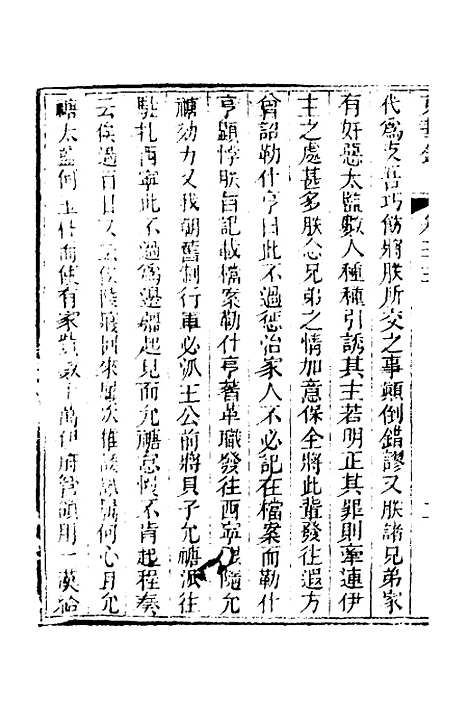 代爲文吾巧飾將朕所交之事顛倒錯謬又朕諸兄弟家
有好惡太監數人種種引誘其主若明正其罪則牽連伊
主之處甚多朕念兄弟之情加意保全將此輩發往遐方
曾詔勒什亨曰此不過懲治家人不必記在檔案而勒什
亨顯悖朕旨記載檔案勒什亨著革職發往西寧跟隨允
禟効力又我朝舊制行軍必派王公前將貝子允禟派往
駐扎西寧此不過爲邊疆起見而允禟怠慢不肯起程奏
云俟過百日又云俟陵寢回來屢次推諉是屬何心且允
禟太監何玉柱而使有家貲數十萬伊府管領用一漢